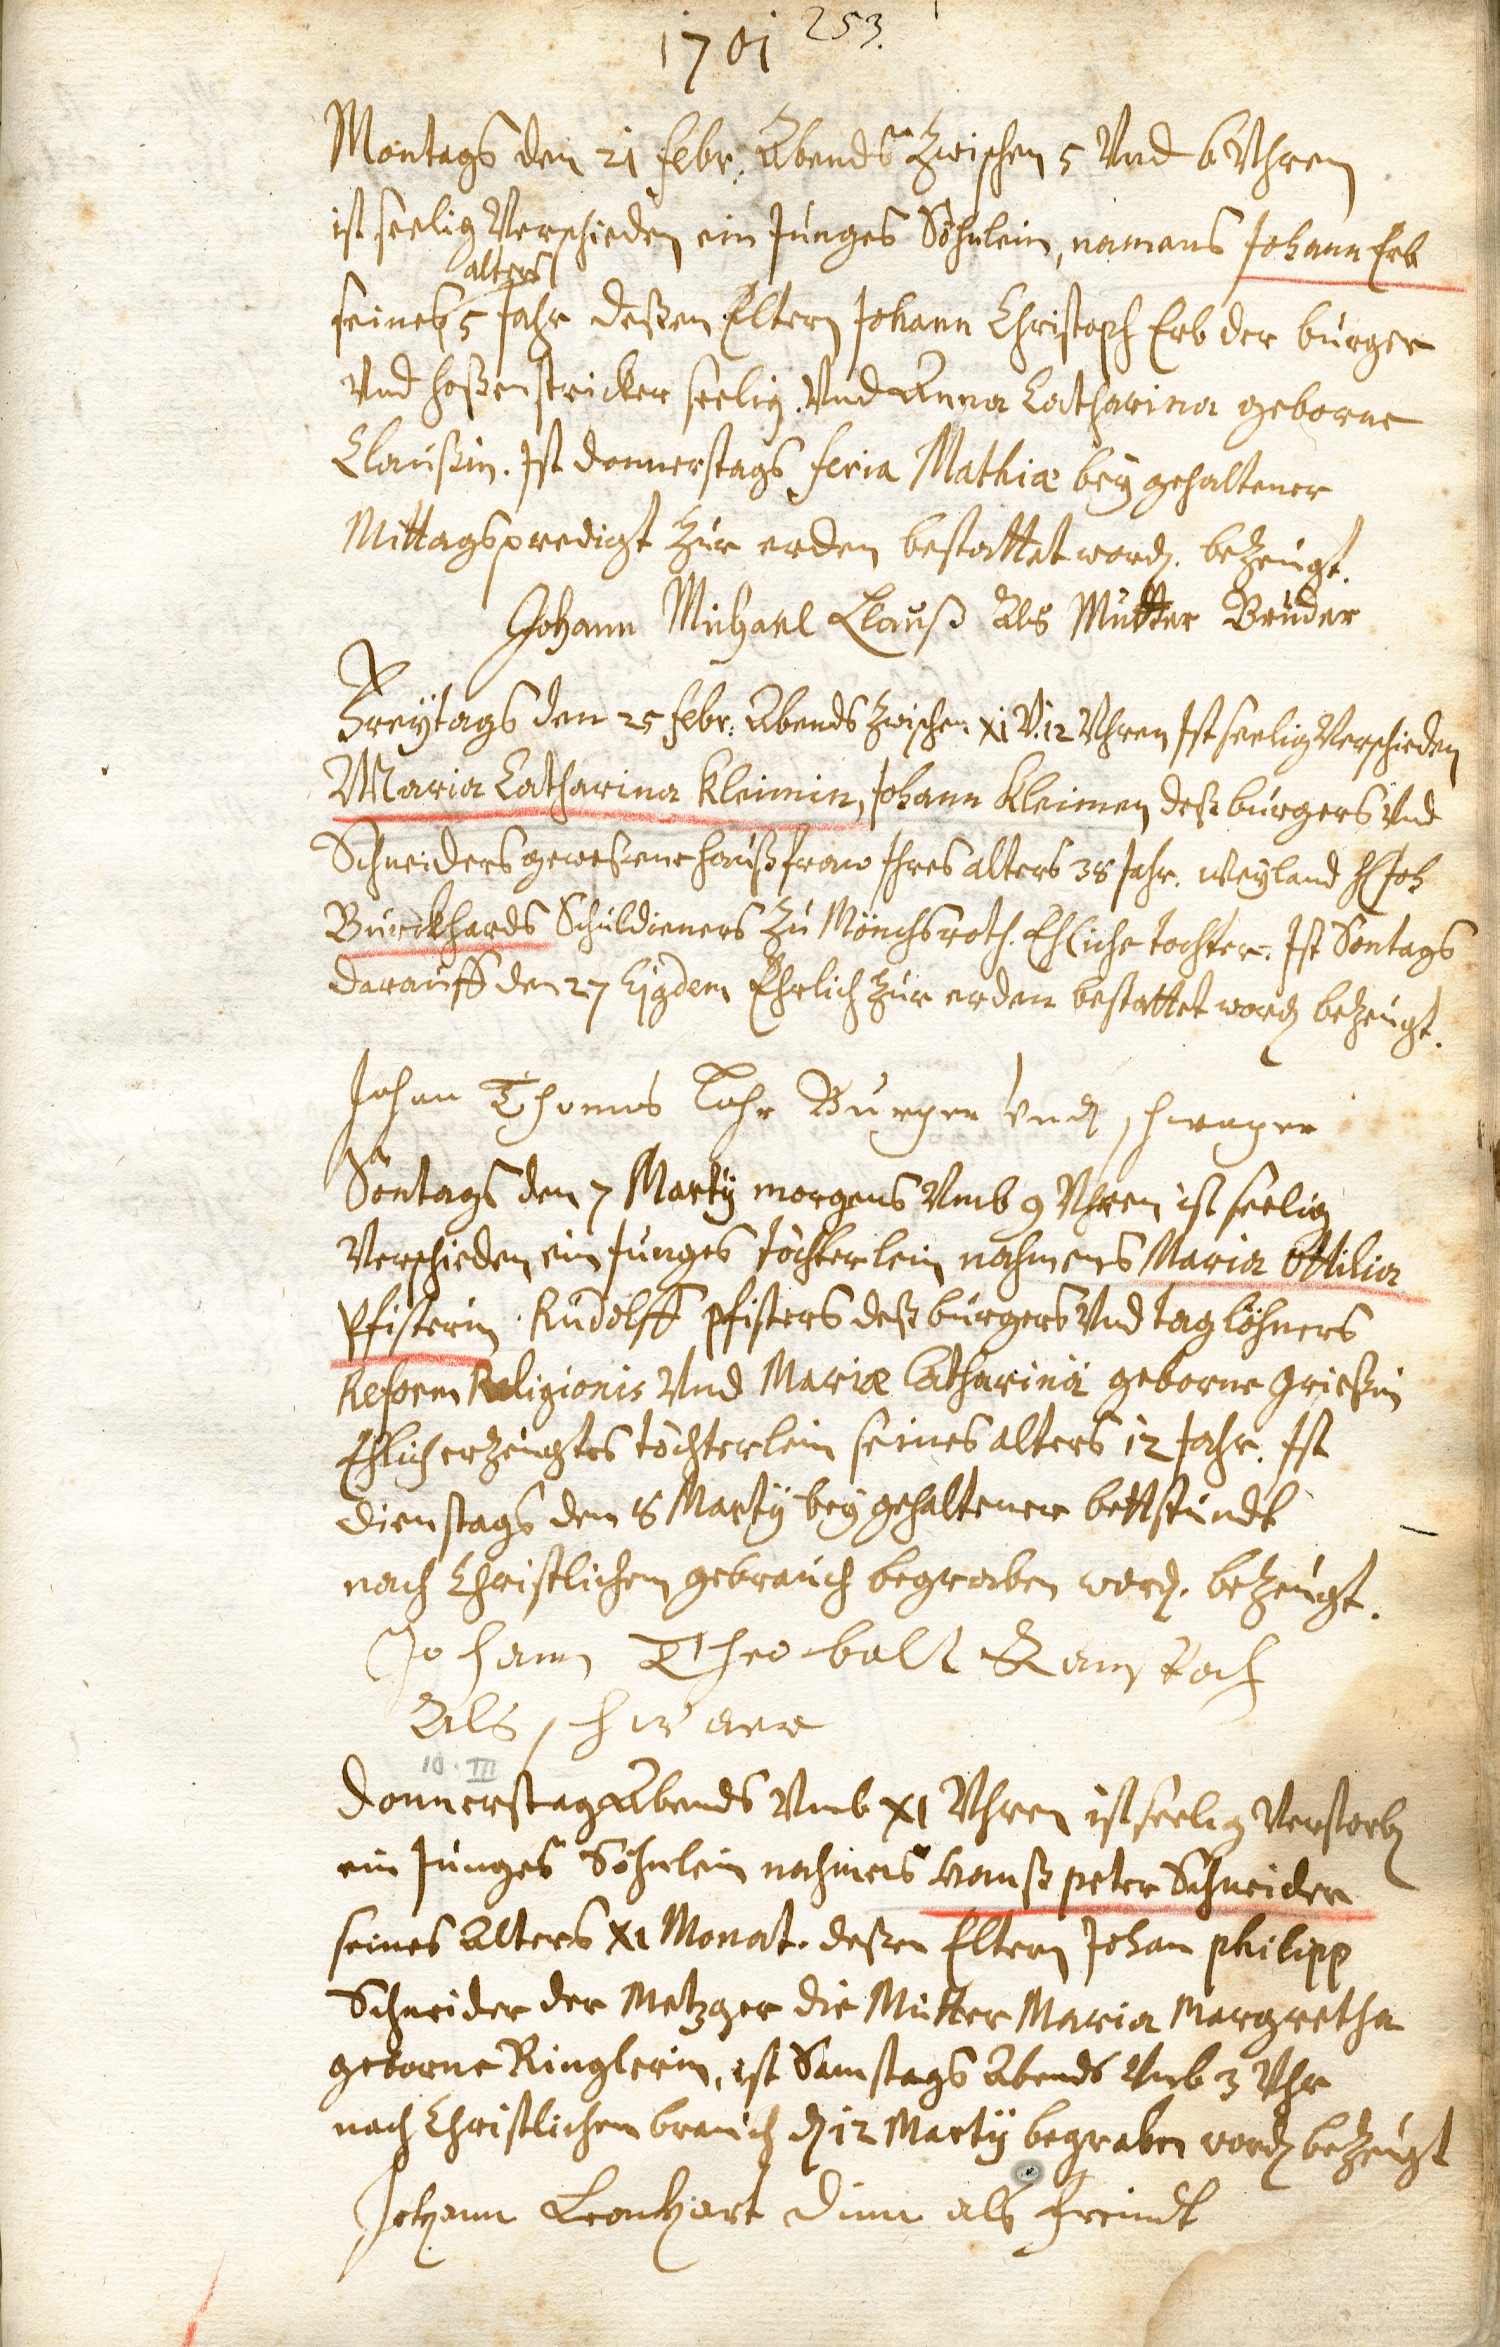 1701 253.
Montags den 21 febr: Abends Zwischen 5 Vnd 6 Vhren
ist seelig Verschieden ein Junges Söhnlein, namens Johann Erb
alters
seines 5 Jahr deßen Eltern Johann Christoph Erb der burger
Vnd hoßenstricker seelig. Vnd Anna Catharina geborne
Claußin. Ist donnerstags feria Mathiæ beÿ gehaltener
Mittagspredigt zur erden bestattet word. beZeugt.
Johann Michael Clauß Als Mutter Bruder
Freÿtags den 25 febr: Abends zwischen XI V. 12 Vhren Ist seelig Verschieden
Maria Catharina Kleimin, Johann Kleimen deß burgers Vnd
Schneiders geweßene haußfraw Ihres alters 38 Jahr. Weyland H Joh
Burckhards Schuldieners Zu Mönchsroth. Ehliche tochter. Ist Sontags
darauff den 27 Ejgdem Ehrlich zur erden bestattet word beZeugt.
Johan Thomas Lohr Burger Vnd schwager
Sontags den 7 Martÿ morgens Vmb 9 Vhren ist seelig
Verschieden ein Junges töchterlein nahmens Maria Ottilia
Pfisterin. Rudolff Pfisters deß burgers Vnd taglöhners
Reform Religionis Vnd Mariæ Catharinä geborne Grießin
Ehlich erzeugtes töchterlein seines alters 12 Jahr. Ist
dienstags den 8 Martÿ beÿ gehaltener bettstundt
nach Christlichem gebrauch begraben word. beZeugt.
Johann Theobalt
Als schwaer
10. III
Donnerstag Abends Vmb XI Vhren ist seelig Verstorb
ein Junges Söhnlein nahmens Hanß peter Schneider
seines Alters XI Monat. deßen Eltern Johan philipp
Schneider der Metzger die Mutter Maria Margretha
geborne Ringlerin, ist Samstags Abends Vmb 3 Vhr
nach Christlichem brauch d 12 Martÿ begraben word beZeugt
Johann Leonhart als freindt